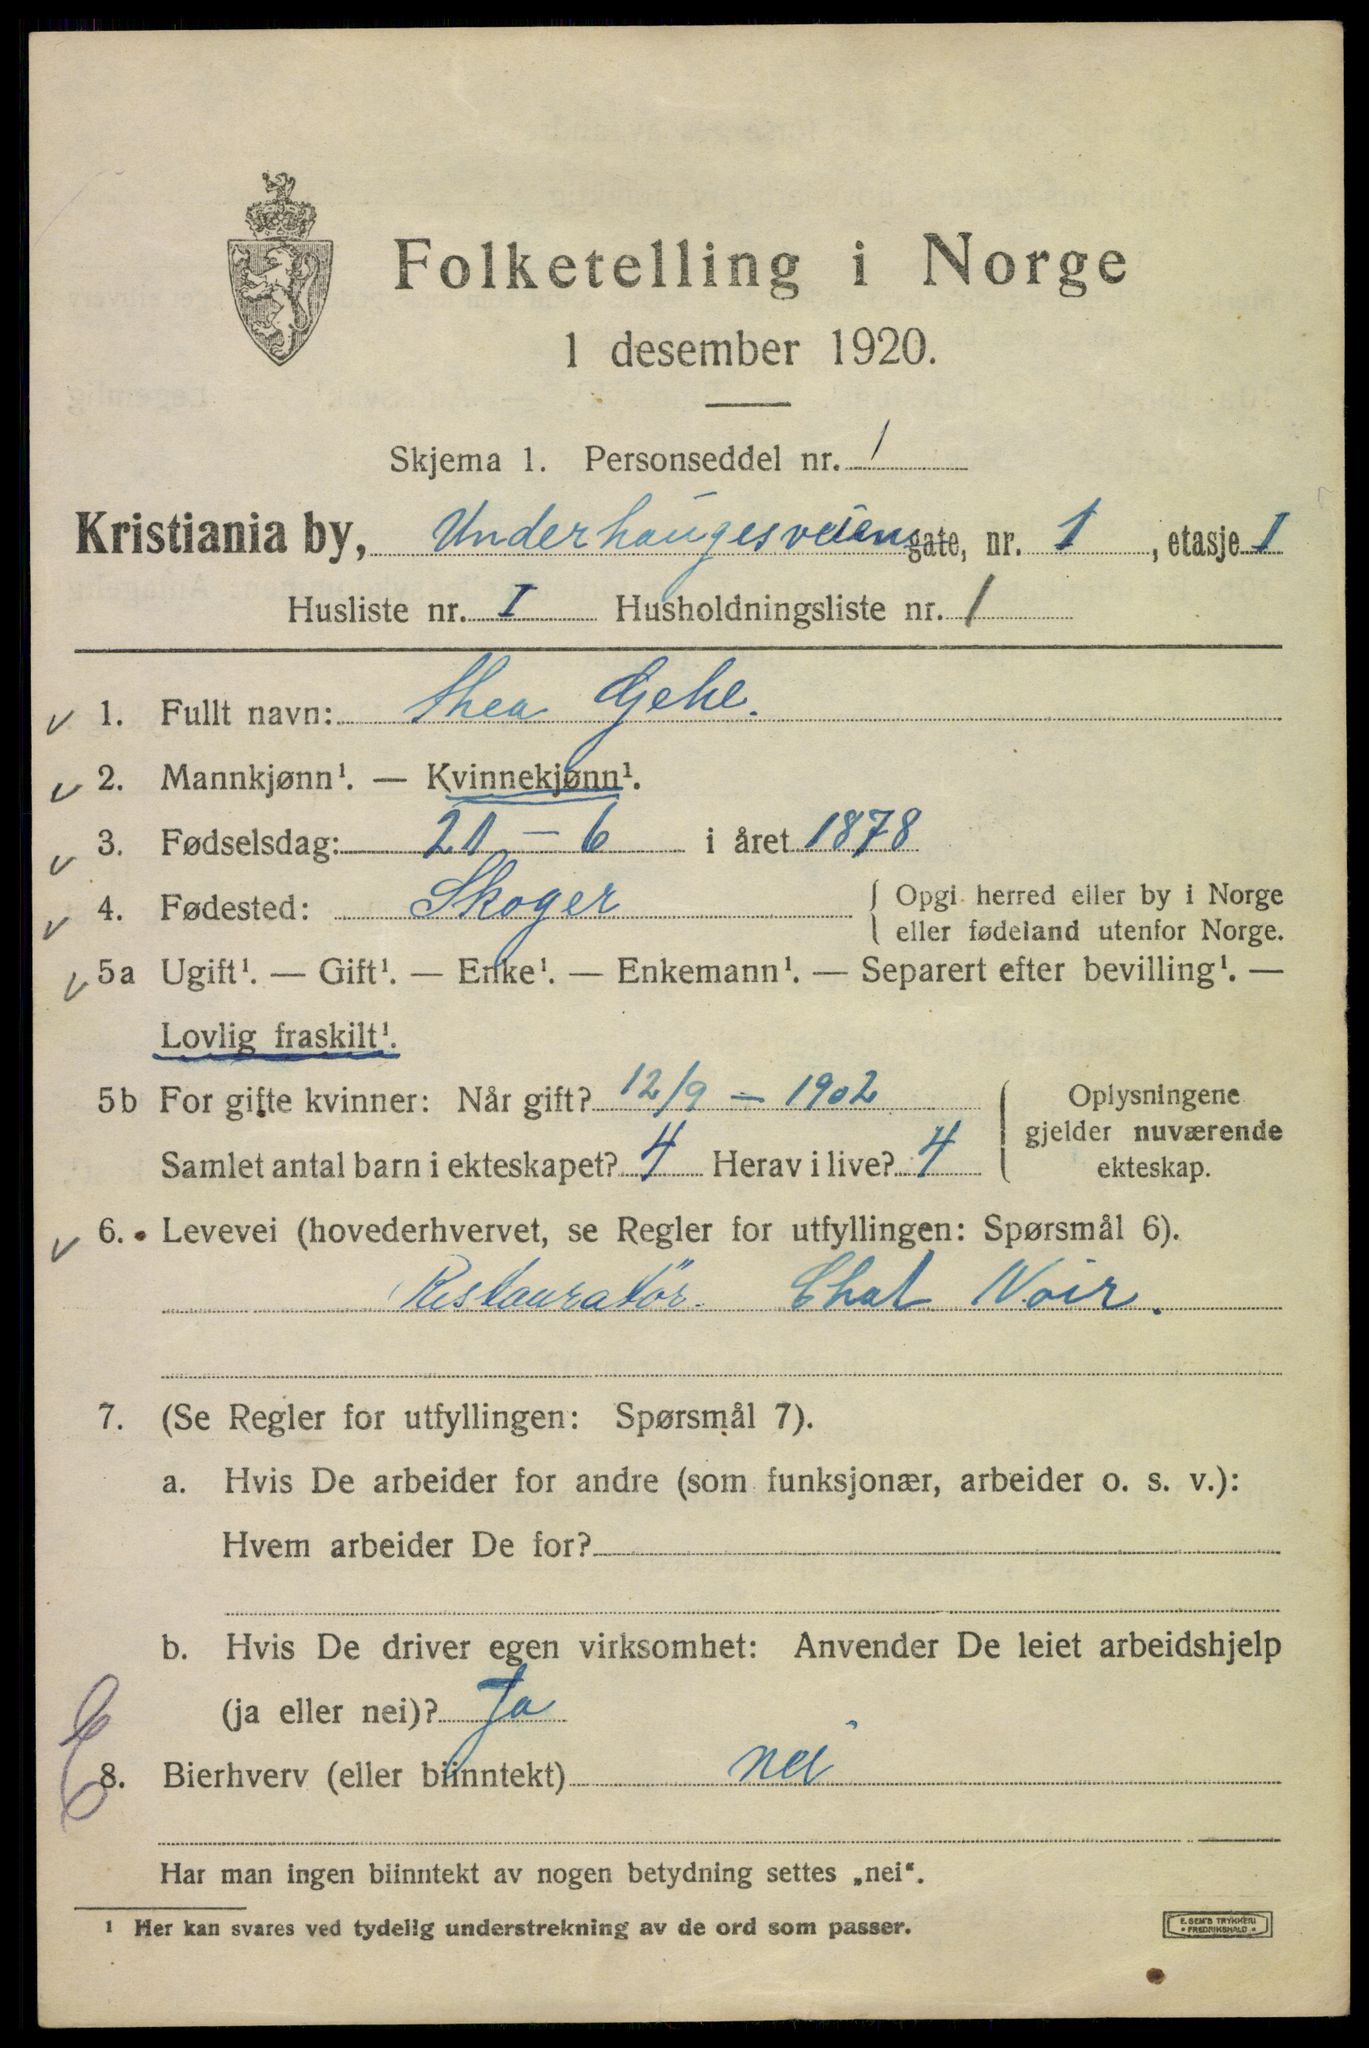 Folketelling i Norge
1 desember 1920.
Skjema 1. Personseddel nr. 1
Kristiania by, Underhaugesveien gate, nr. 1, etasje I
Husliste nr. I Husholdningsliste nr. 1
1. Fullt navn: Thea Gehe.
2. Mannkjønn¹. — Kvinnekjønn¹.
3. Fødselsdag: 21 – 6 i året 1878
4. Fødested: Skoger { Opgi herred eller by i Norge
eller fødeland utenfor Norge.
5a Ugift¹. — Gift¹. — Enke¹. — Enkemann¹. — Separert efter bevilling¹. —
Lovlig fraskilt¹.
5b For gifte kvinner: Når gift? 12/9 – 1902
Samlet antal barn i ekteskapet? 4 Herav i live? 4
Oplysningene
gjelder nuværende
ekteskap.
6. Levevei (hovederhvervet, se Regler for utfyllingen: Spørsmål 6).
Restauratør. Chat Noir.
7. (Se Regler for utfyllingen: Spørsmål 7).
a. Hvis De arbeider for andre (som funksjonær, arbeider o. s. v.):
Hvem arbeider De for?
b. Hvis De driver egen virksomhet: Anvender De leiet arbeidshjelp
(ja eller nei)? Ja
8. Bierhverv (eller biinntekt) nei
Har man ingen biinntekt av nogen betydning settes „nei“.
¹ Her kan svares ved tydelig understrekning av de ord som passer.
E. SEM'S TRYKKERI
FREDRIKSHALD